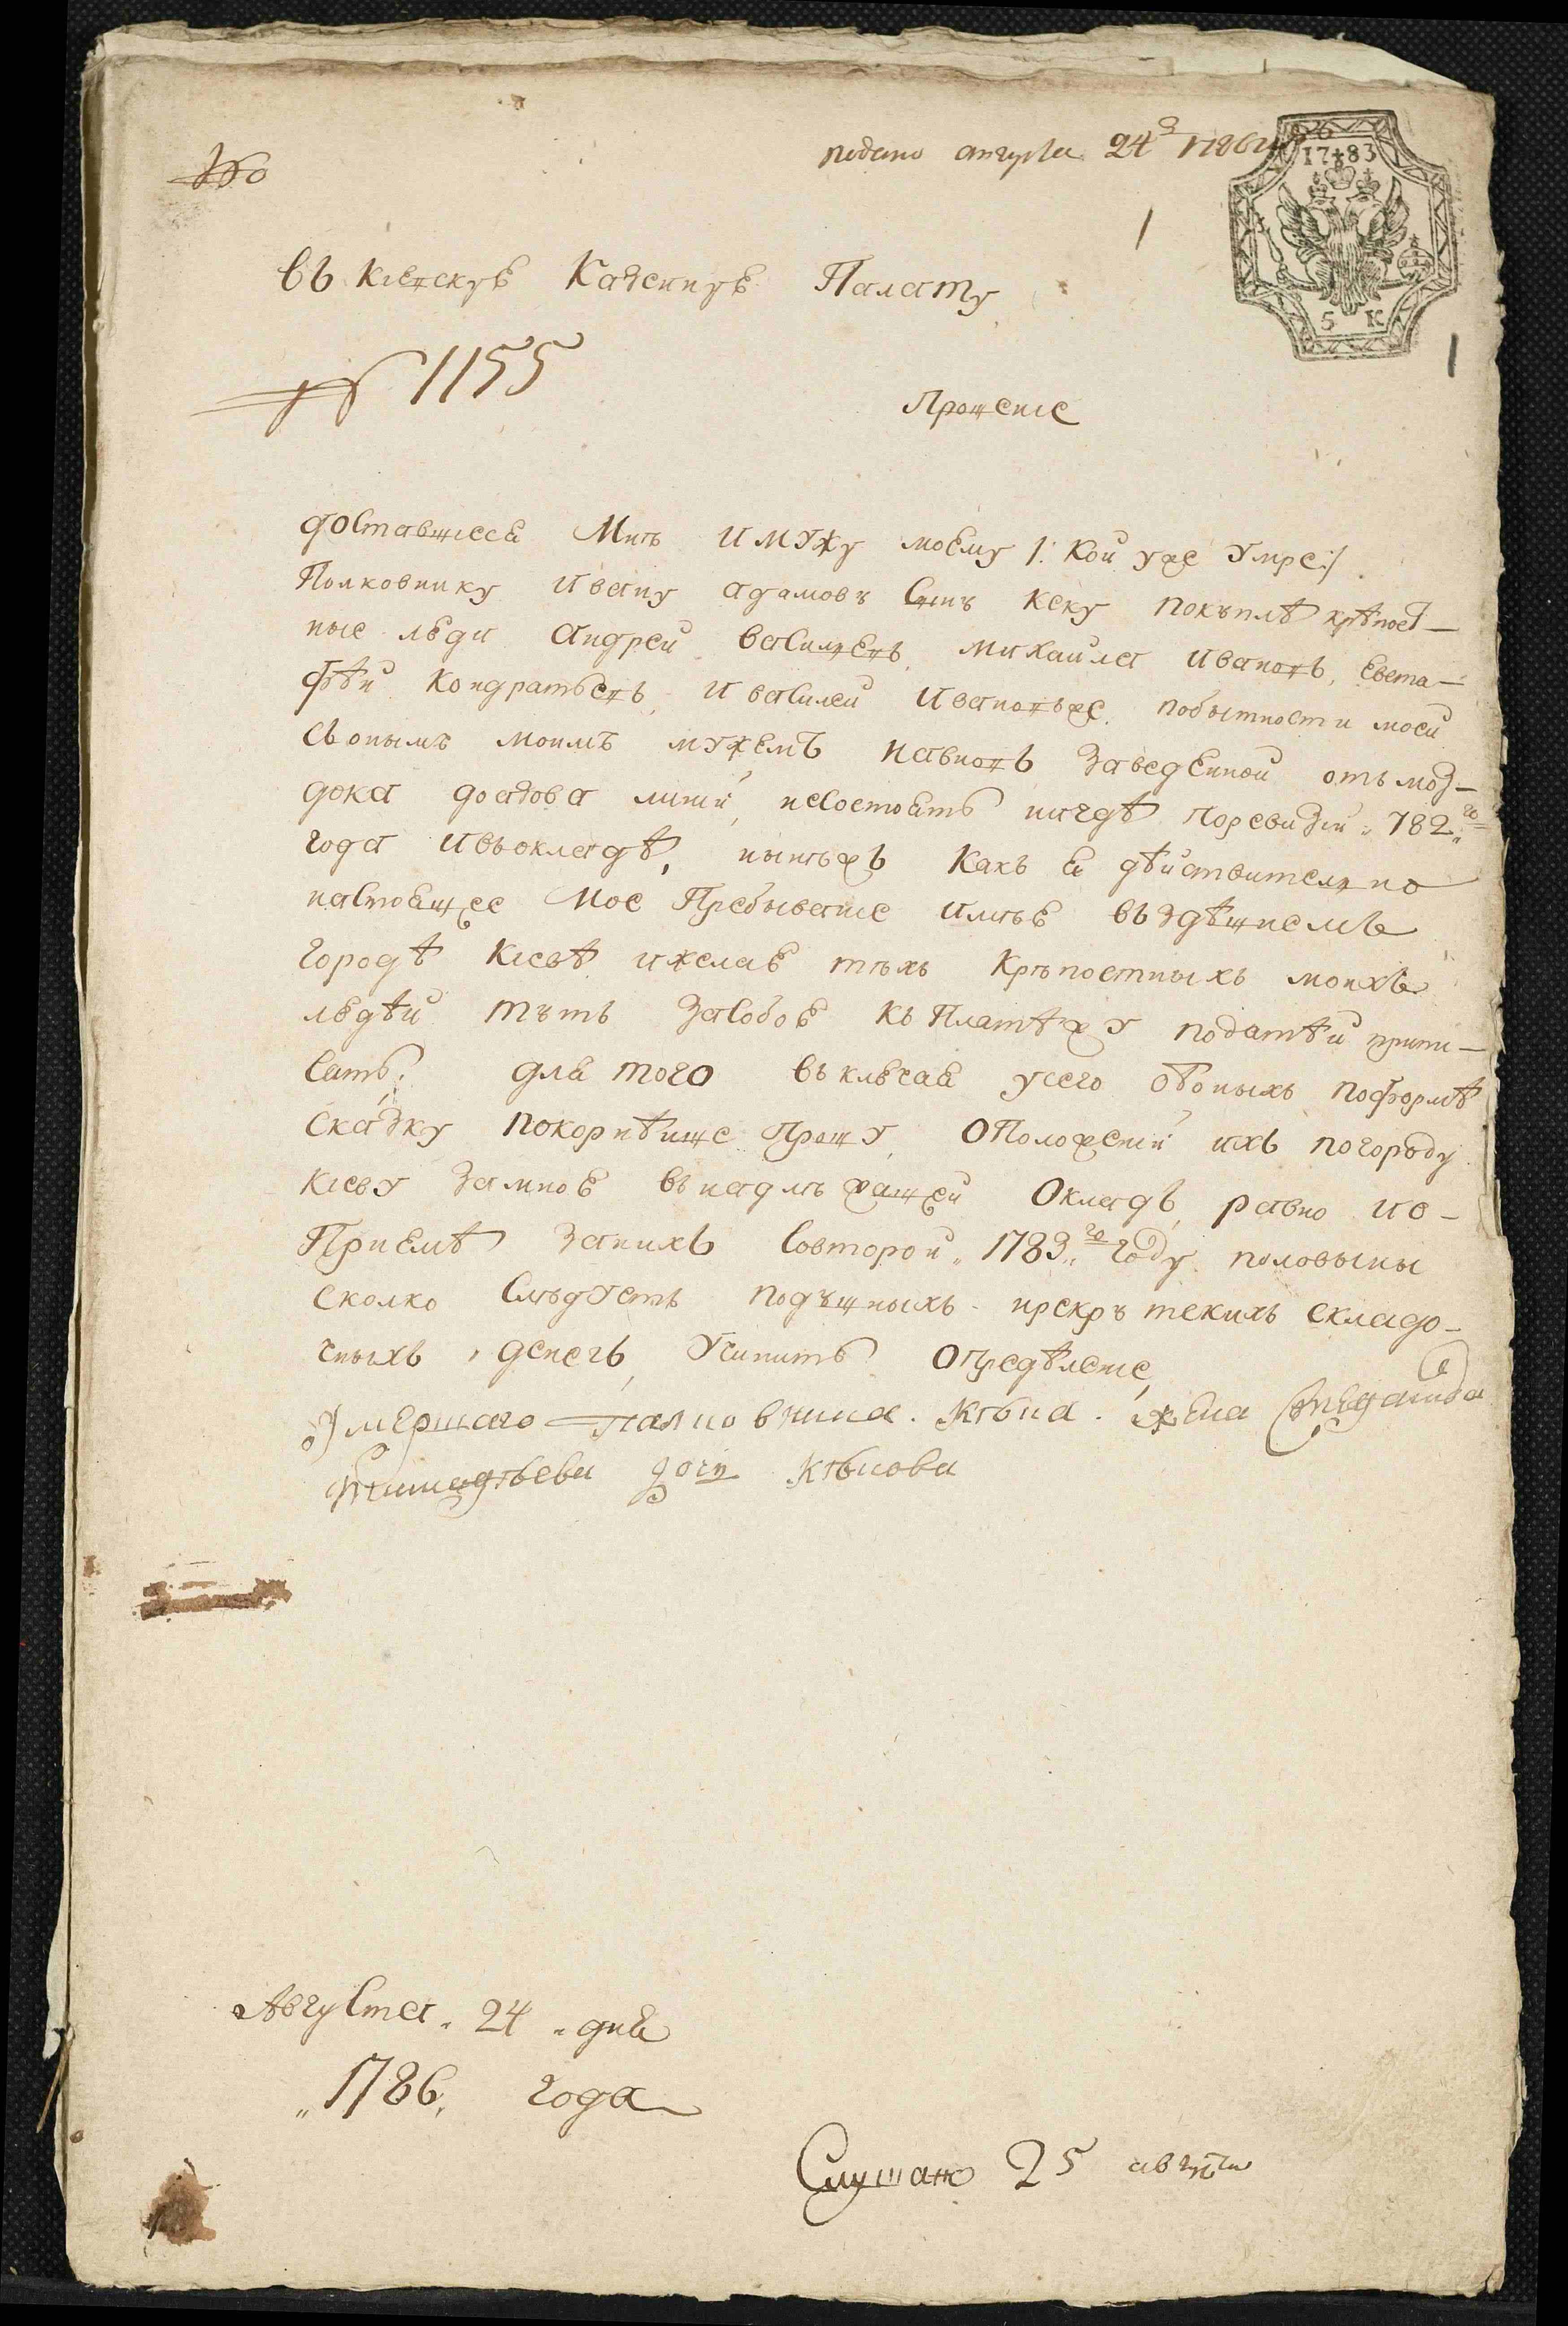 подано августа 24 г 1786 году
17 83
5 К
1
1
Въ Киевскую Казенную Палату
№ 1155
Прошение
доставшиеся Мнѣ и мужу моему /: кой уже умре :/
Полковнику Ивану адамовъ сынъ кеку покъплѣ крѣпост-
ные люди андрей васильевъ, михайла ивановъ, евста-
фѣй кондратьевъ, и василей ивановъже, побытности моей
сьонымъ моимъ мужемъ навновь заведенной отъ моз-
дока до азова линіи, несостоятъ нигдѣ поревизіи 782 го
года ивъокладѣ, нынѣжъ какъ я дѣйствително
настоящее мое Пребываніе имѣю въздѣшнемъ
городѣ Киевѣ ижелаю тѣхъ крѣпостныхъ моихъ
людѣй тъть засобою къ Платѣжу податѣй припи-
сать: для того въключая усего обоныхъ поформѣ
сказку, покорнѣйше прошу, О Положеніи ихъ погороду
Киеву замною въ надлѣжащей Окладъ, равно ио-
Приемѣ занихъ совторой 1783 го году половыны
сколко слѣдуетъ подъшныхъ ирекрътскихъ складо-
чныхъ денегъ, учинить опредѣление,
умершаго полковника Кѣка жена
дочь Кѣкова
Августа 24 дня
1786, года
Слушано 25 августа